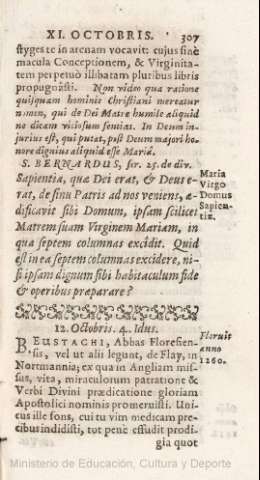 XI. OCTOBRIS. 307
styges te in arenam vocavit: cujus sinè
macula Conceptionem, & Virginita-
tem perpetuò illibatam pluribus libris
propugnâsti. Non video qua ratione
quisquam hominis Christiani mereatur
nomen, qui de Dei Matre humile aliquid
ne dicam vitiosum sentias. In Deum in-
jurius est, qui putat, post Deum majori ho-
nore dignius aliquid esse Mariâ.
S. BERNARDUS, ser. 25. de div.
Sapientia, quæ Dei erat, & Deus e-
rat, de sinu Patris ad nos veniens, æ-
dificavit sibi Domum, ipsam scilicet
Matrem suam Virginem Mariam, in
qua septem columnas excidit. Quid
est in ea septem columnas excidere, ni-
si ipsam dignum sibi habitaculum fide
& operibus præparare?
Maria
Virgo
Domus
Sapien-
tiæ.
12. Octobris. 4. Idus.
BEUSTACHI, Abbas Floresien-
sis, vel ut alii legunt, de Flay, in
Nortmannia; ex qua in Angliam mis-
sus, vita, miraculorum patratione &
Verbi Divini prædicatione gloriam
Apostolici nominis promeruisti. Uni-
cus ille fons, cui tu vim medicam pre-
cibus indidisti, tot penè effudit prodi-
gia quot
Floruit
anno
1260.
Ministerio de Educación, Cultura y Deporte